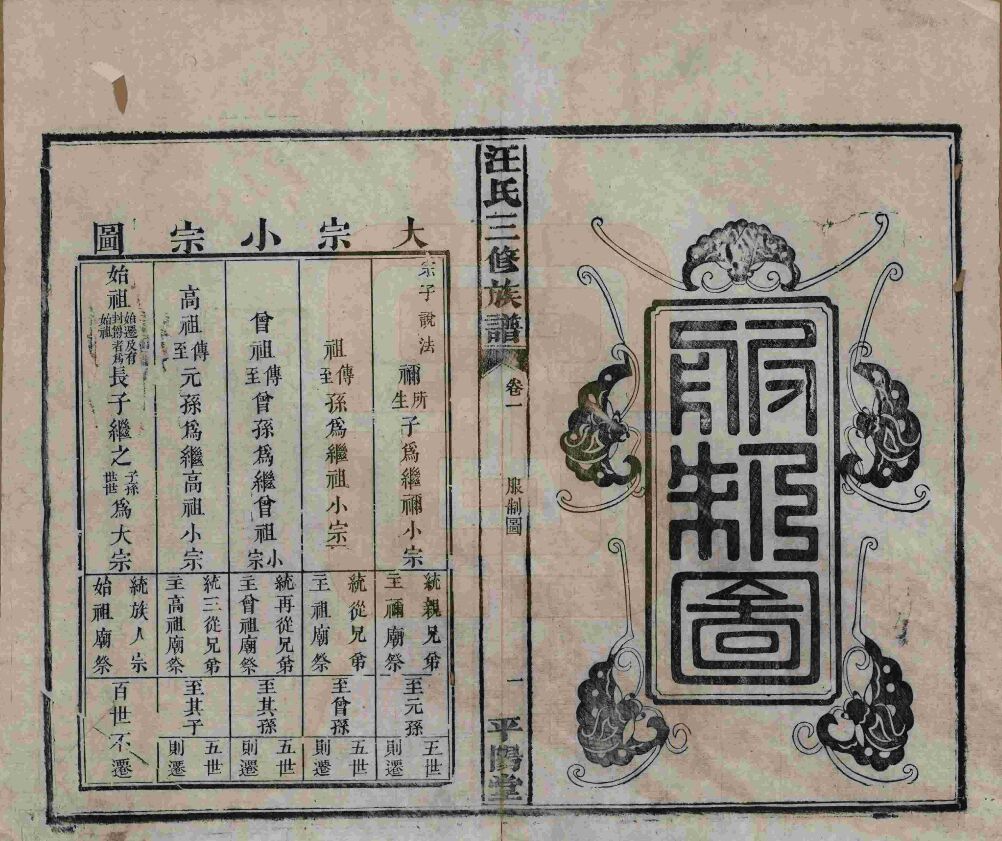 服制圖
汪氏三修族譜
卷一
服制圖
一
平陽堂
大宗小宗圖
宗子說法
禰所生子為繼禰小宗
統親兄弟主禰廟祭
至元孫
五世則遷
祖傳至孫為繼祖小宗
統從兄弟主祖廟祭
至曾孫
五世則遷
曾祖傳至曾孫為繼曾祖小宗
統再從兄弟主曾祖廟祭
至其孫
五世則遷
高祖傳至元孫為繼高祖小宗
統三從兄弟主高祖廟祭
至其子
五世則遷
始祖始遷及有封爵者為始祖長子繼之子孫世世為大宗
統族人宗始祖廟祭
百世不遷